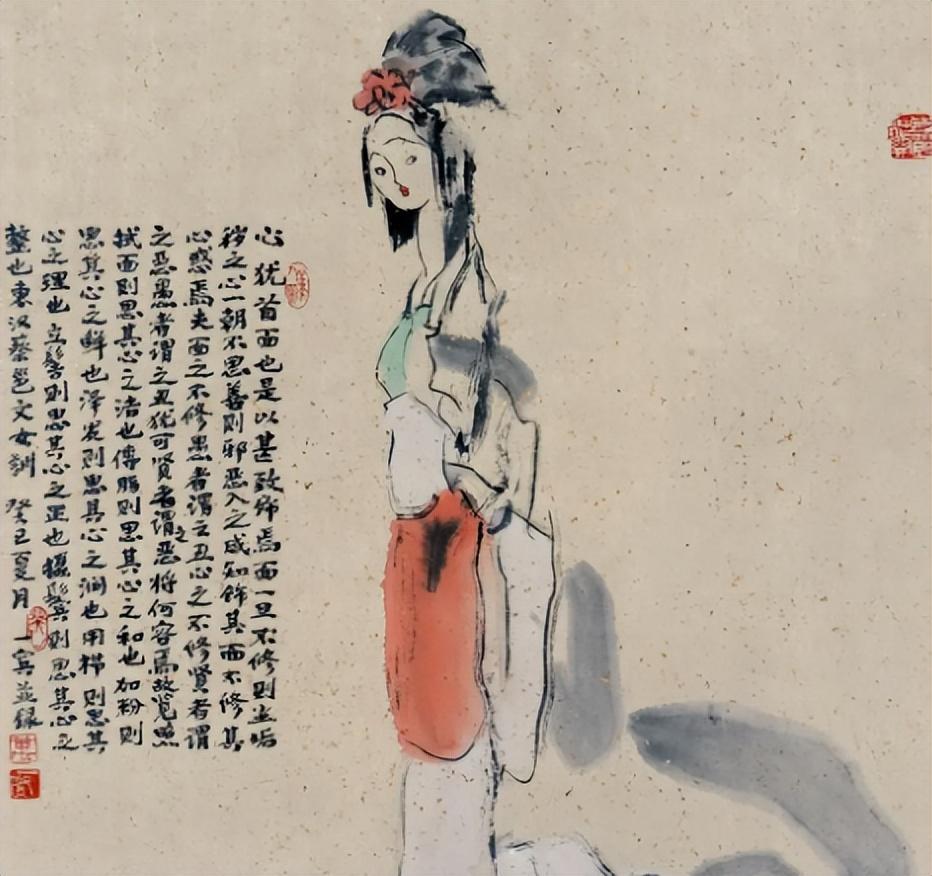 心犹首面也是以甚致饰焉面一旦不修则尘垢
秽之心一朝不思善则邪恶入之咸知饰其面不修其
心惑焉夫面之不修愚者谓之丑心之不修贤者谓
之恶愚者谓之丑犹可贤者谓之恶将何容焉故览照
拭面则思其心之洁也傅脂则思其心之和也加粉则
思其心之鲜也泽发则思其心之润也用栉则思其
心之理也立髻则思其心之正也摄鬓则思其心之
整也東汉蔡邕文女訓 癸巳夏月 一宾並録